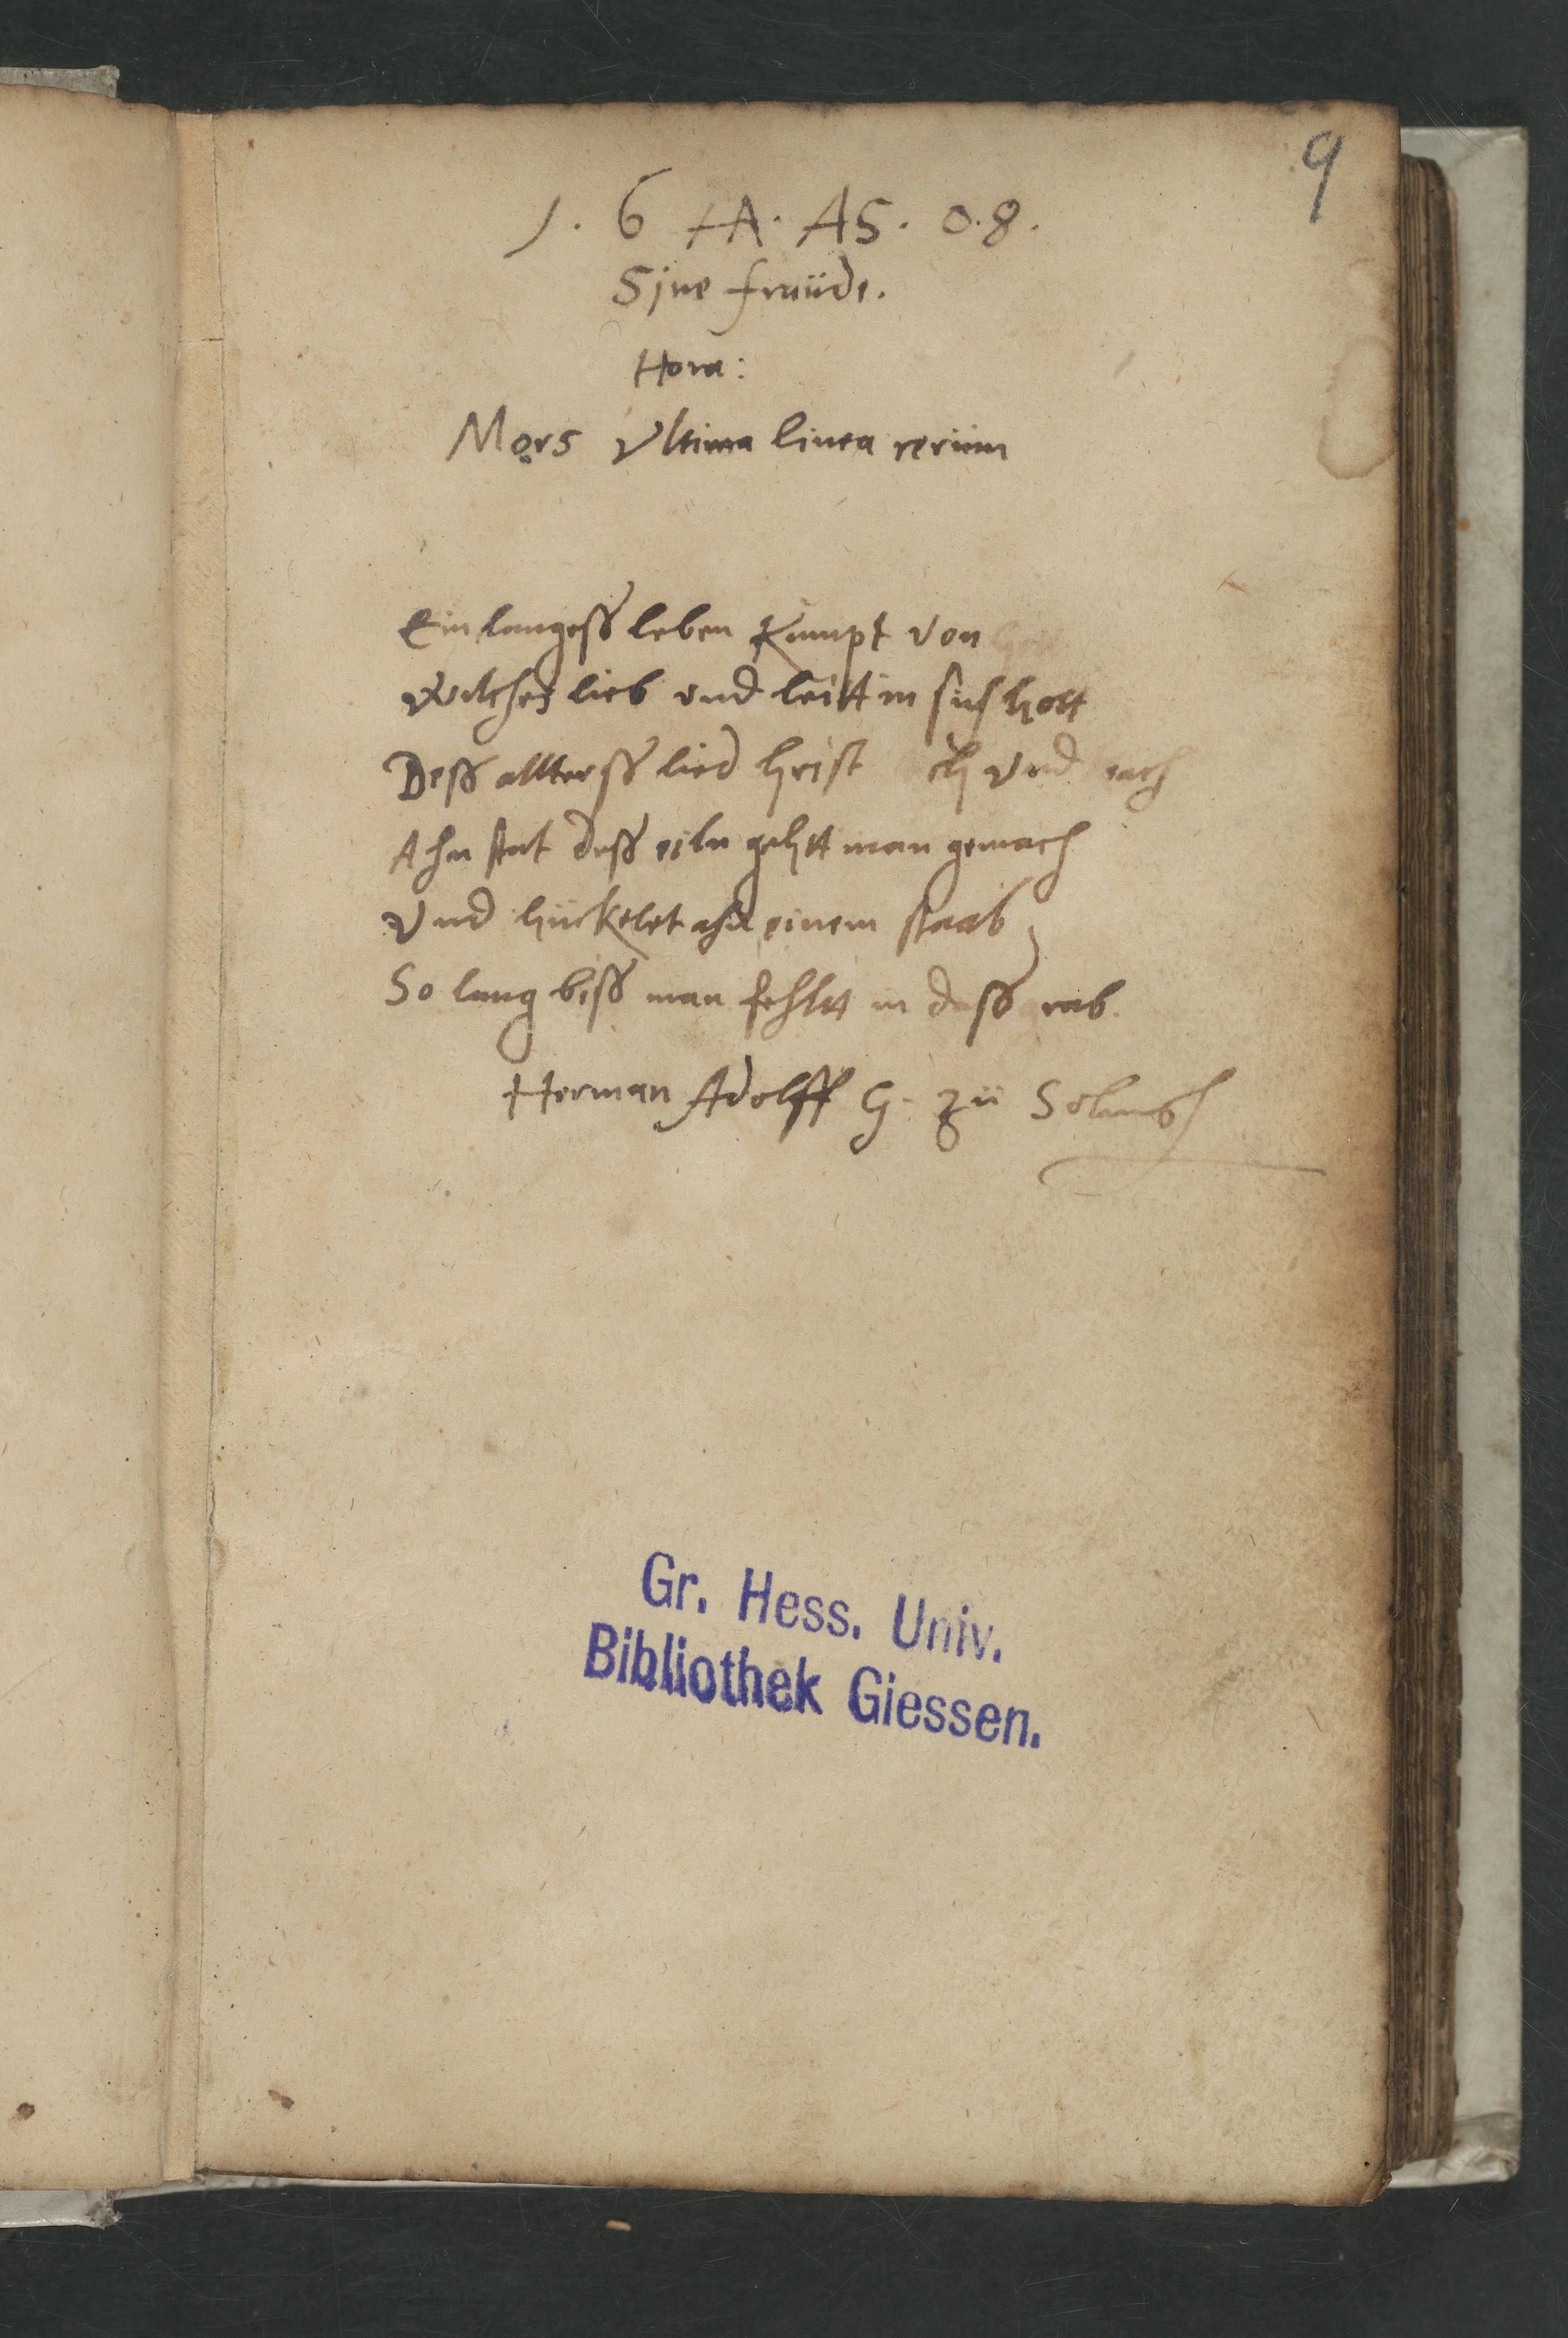 9
1. 6 HA. AS. 0.8.
Sine freüde.
Hora:
Mors Vltima linea rerüm
Ein langess leben Kumpt von Gott
Welches lieb vnd leitt in sich hott
Dess allterss lied heist ch vnd ach
Ahn stat dess eiln gehtt man gemach
Vnd hückelet ahn einem staab
So lang biss man fehltt in dass rab.
Herman Adolff G. zü Solms
Gr. Hess. Univ.
Bibliothek Giessen.